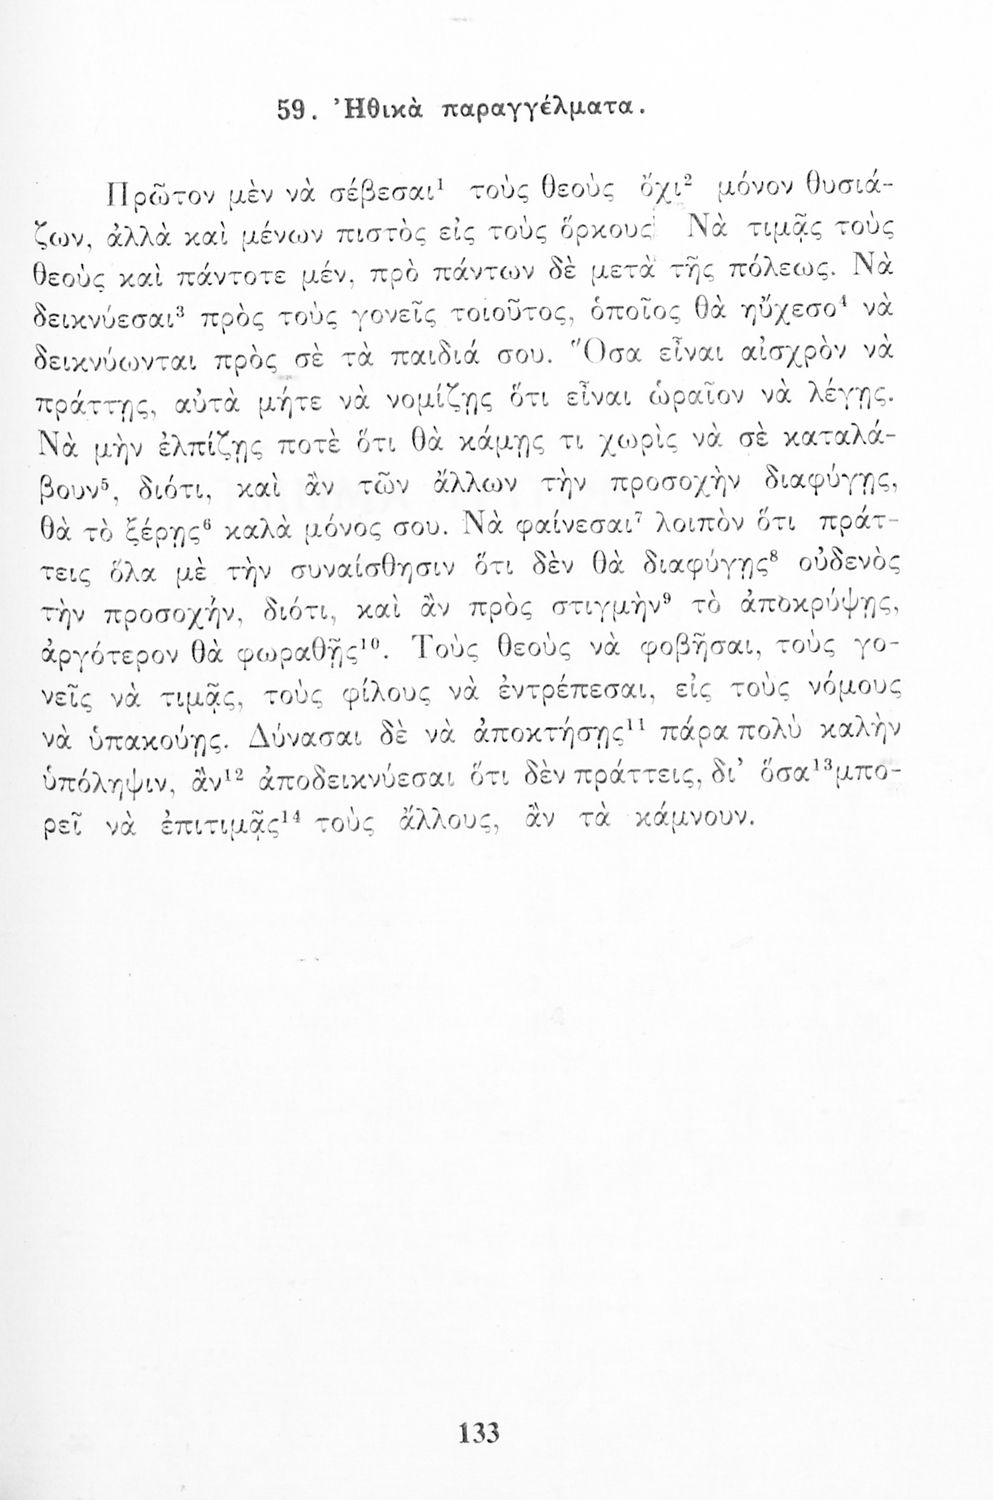 59. Ἠθικὰ παραγγέλματα.
Πρῶτον μὲν νὰ σέβεσαι¹ τοὺς θεοὺς ὄχι² μόνον θυσιά-
ζων, ἀλλὰ καὶ μένων πιστὸς εἰς τοὺς ὅρκους· Νὰ τιμᾷς τοὺς
θεοὺς καὶ πάντοτε μέν, πρὸ πάντων δὲ μετὰ τῆς πόλεως. Νὰ
δεικνύεσαι³ πρὸς τοὺς γονεῖς τοιοῦτος, ὁποῖος θὰ ηὔχεσο⁴ νὰ
δεικνύωνται πρὸς σὲ τὰ παιδιά σου. Ὅσα εἶναι αἰσχρὸν νὰ
πράττῃς, αὐτὰ μήτε νὰ νομίζῃς ὅτι εἶναι ὡραῖον νὰ λέγῃς.
Νὰ μὴν ἐλπίζῃς ποτὲ ὅτι θὰ κάμῃς τι χωρὶς νὰ σὲ καταλά-
βουν⁵, διότι, καὶ ἂν τῶν ἄλλων τὴν προσοχὴν διαφύγῃς,
θὰ τὸ ξέρῃς⁶ καλὰ μόνος σου. Νὰ φαίνεσαι⁷ λοιπὸν ὅτι πράτ-
τεις ὅλα μὲ τὴν συναίσθησιν ὅτι δὲν θὰ διαφύγῃς⁸ οὐδενὸς
τὴν προσοχήν, διότι, καὶ ἂν πρὸς στιγμὴν⁹ τὸ ἀποκρύψῃς,
ἀργότερον θὰ φωραθῇς¹⁰. Τοὺς θεοὺς νὰ φοβῆσαι, τοὺς γο-
νεῖς νὰ τιμᾷς, τοὺς φίλους νὰ ἐντρέπεσαι, εἰς τοὺς νόμους
νὰ ὑπακούῃς. Δύνασαι δὲ νὰ ἀποκτήσῃς¹¹ πάρα πολὺ καλὴν
ὑπόληψιν, ἂν¹² ἀποδεικνύεσαι ὅτι δὲν πράττεις, δι’ ὅσα¹³ μπο-
ρεῖ νὰ ἐπιτιμᾷς¹⁴ τοὺς ἄλλους, ἂν τὰ κάμνουν.
133